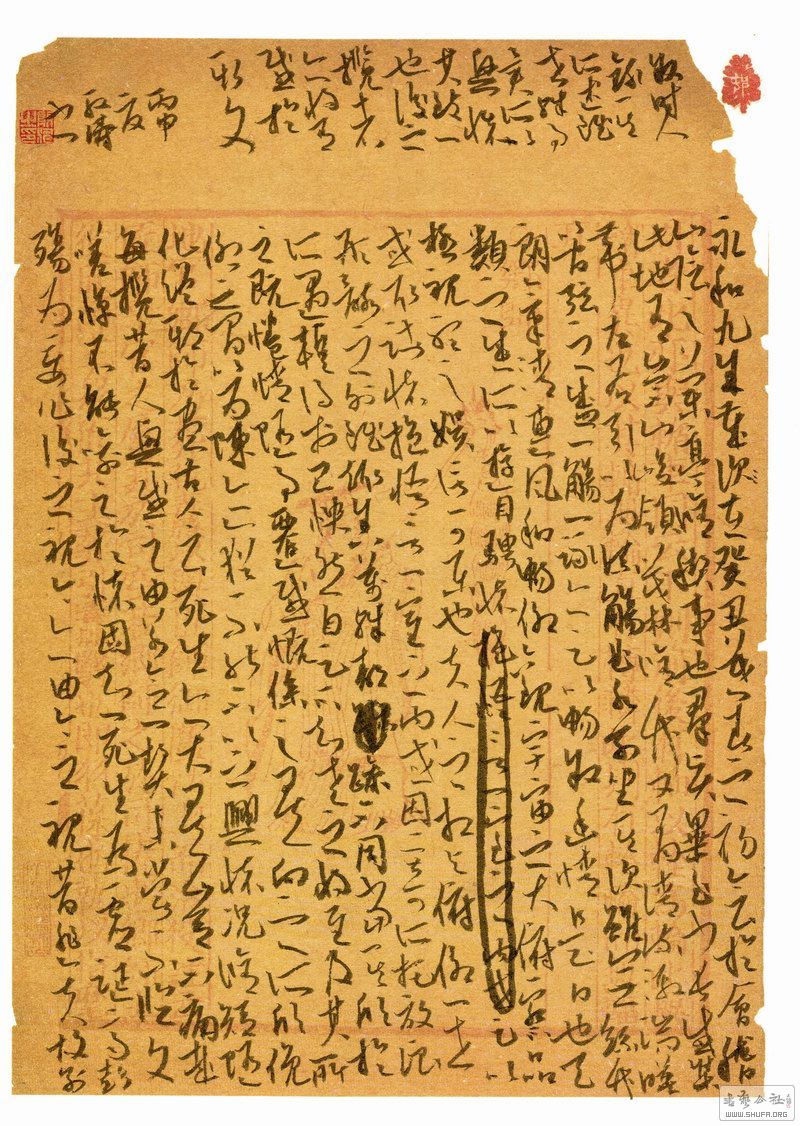 永和九年歲次在癸丑暮春之初會於會稽
山陰之蘭亭脩禊事也群賢畢至少長咸集
此地有崇山峻領茂林脩竹又有清流激湍暎
帶左右引以為流觴曲水列坐其次雖無絲竹
管弦之盛一觴一詠亦足以暢敘幽情是日也天
朗氣清惠風和暢仰觀宇宙之大俯察品
類之盛所以遊目騁懷足以
極視聽之娛信可樂也夫人之相與俯仰一世
或取諸懷抱悟言一室之內或因寄所託放浪
形骸之外雖趣舍萬殊靜躁不同當其欣於
所遇暫得於己快然自足不知老之將至及其所
之既惓情隨事遷感慨係之矣向之所欣俛
仰之間以為陳迹猶不能不以之興懷況脩短隨
化終期於盡古人云死生亦大矣豈不痛哉
每攬昔人興感之由若合一契未嘗不臨文
嗟悼不能喻之於懷固知一死生為虛誕齊彭
殤為妄作後之視今亦由今之視昔悲夫故列
敘時人
錄其
所述雖
世殊事
異所以
興懷
其致一
也後之
攬者
亦將有
感於
斯文
丙申
夏
書
書藝公社
WWW.SHUFA.ORG